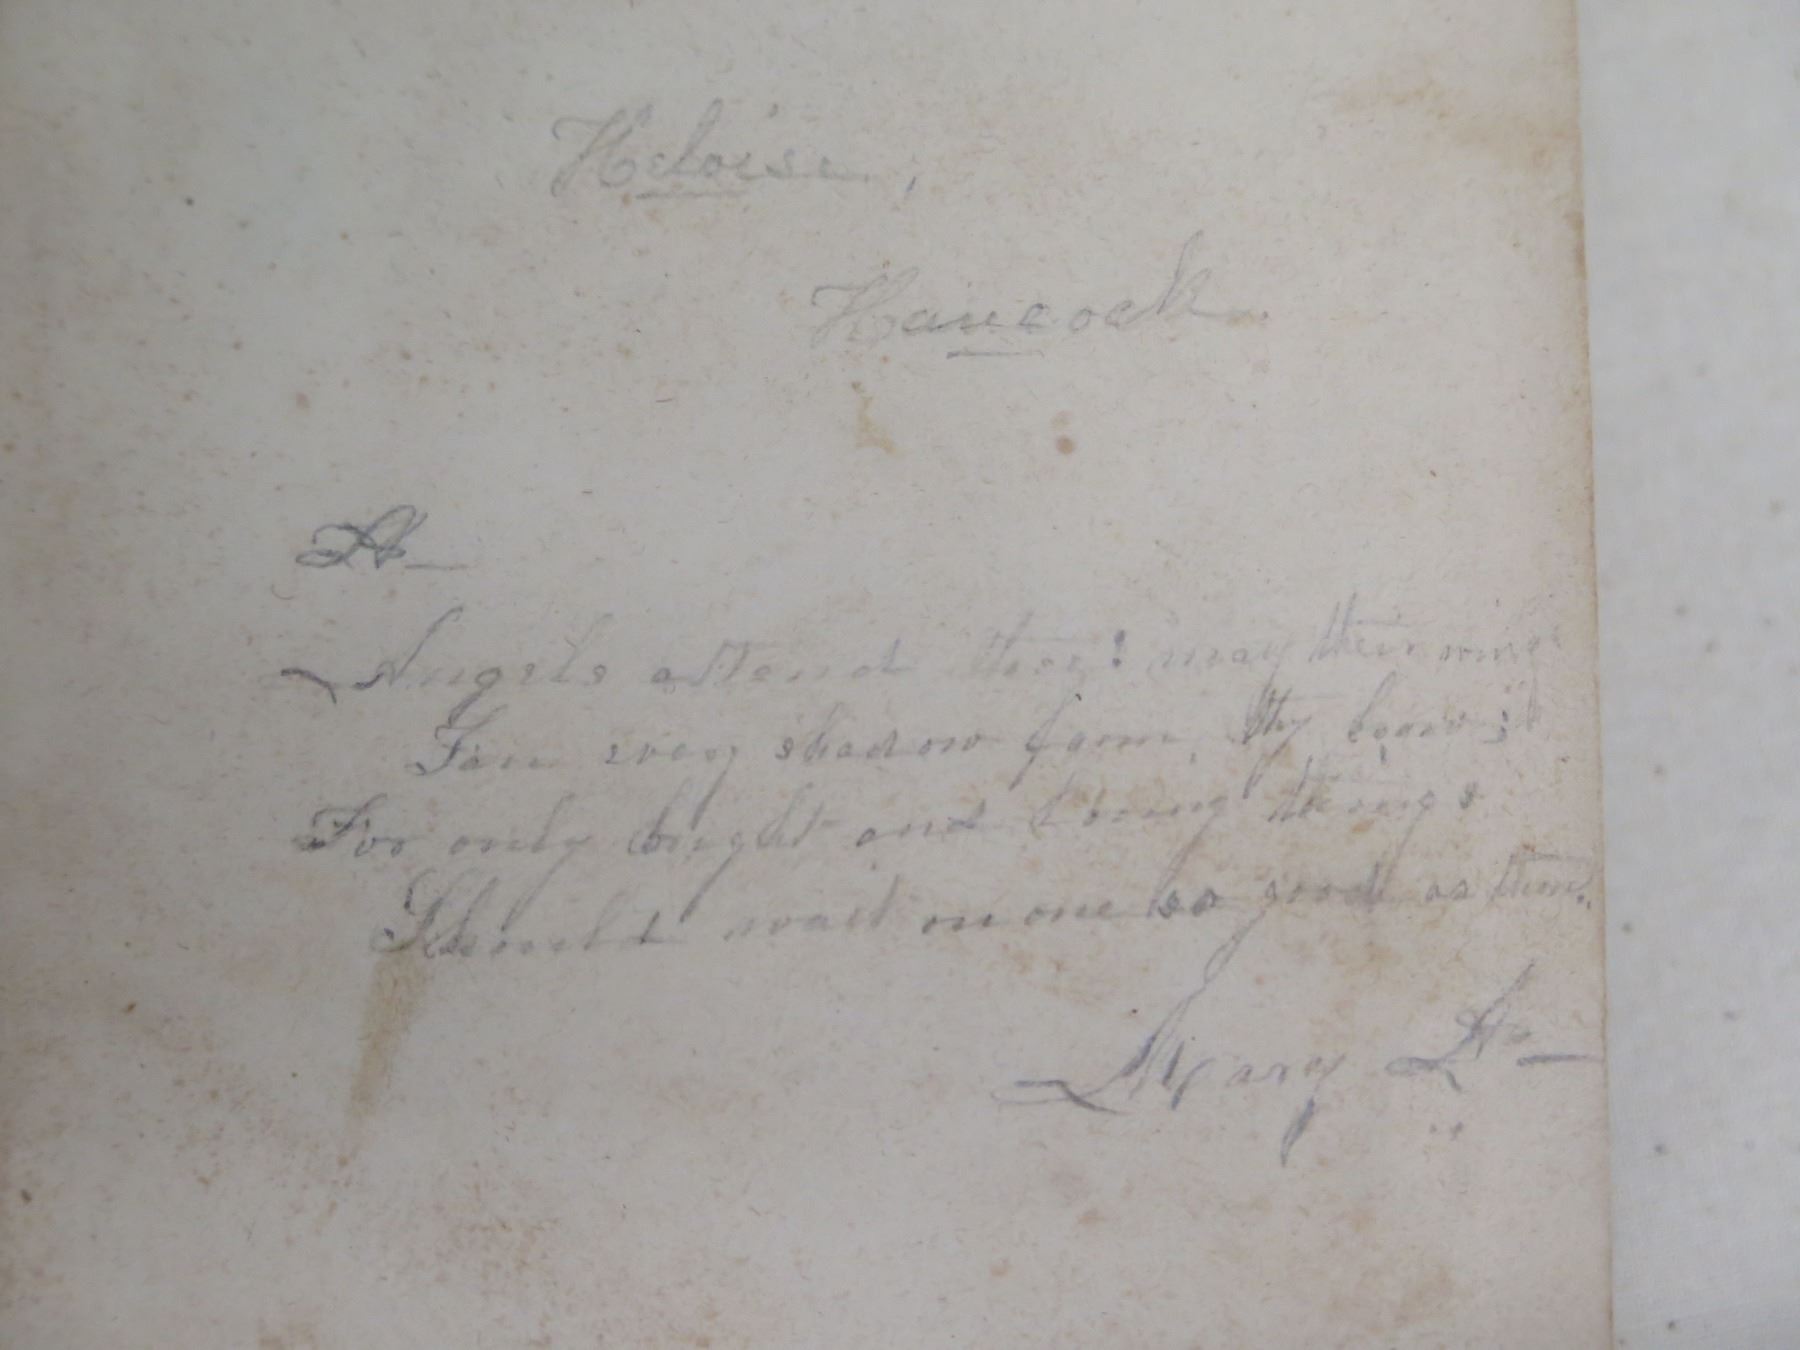 Heloise,
Hancock.
A
Angels attend thee! may their wings
Fan every shadow from thy brow;
For only bright and loving things
Should wait on one so good as thou.
Mary